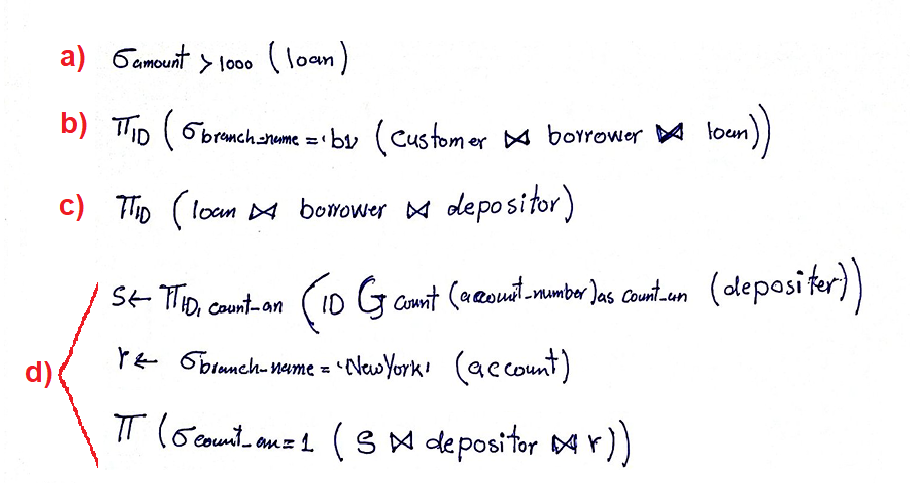 a) σ amount > 1000 (loan)
b) Π ID (σ branch_name = 'b1' (customer ⋈ borrower ⋈ loan))
c) Π ID (loan ⋈ borrower ⋈ depositor)
S ← Π ID, count_an (ID G count (account_number) as count_an (depositer))
d) r ← σ branch_name = 'NewYork' (account)
Π (σ count_an = 1 (S ⋈ depositor ⋈ r))